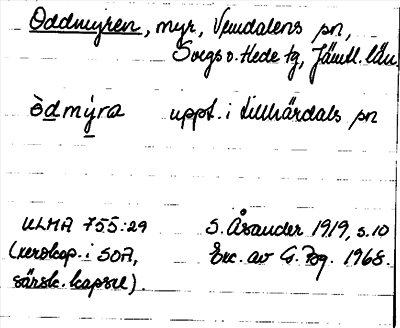 Oddmyren, myr, Vemdalens sn,
Svegs o. Hede tg, Jämtl. län
òdmýra uppt. i Lillhärdals sn
ULMA 755:29 S. Åsander 1919, s. 10
(xeroxkop. i SOA, Exc. av G. Pg. 1968.
särsk. kapsel).